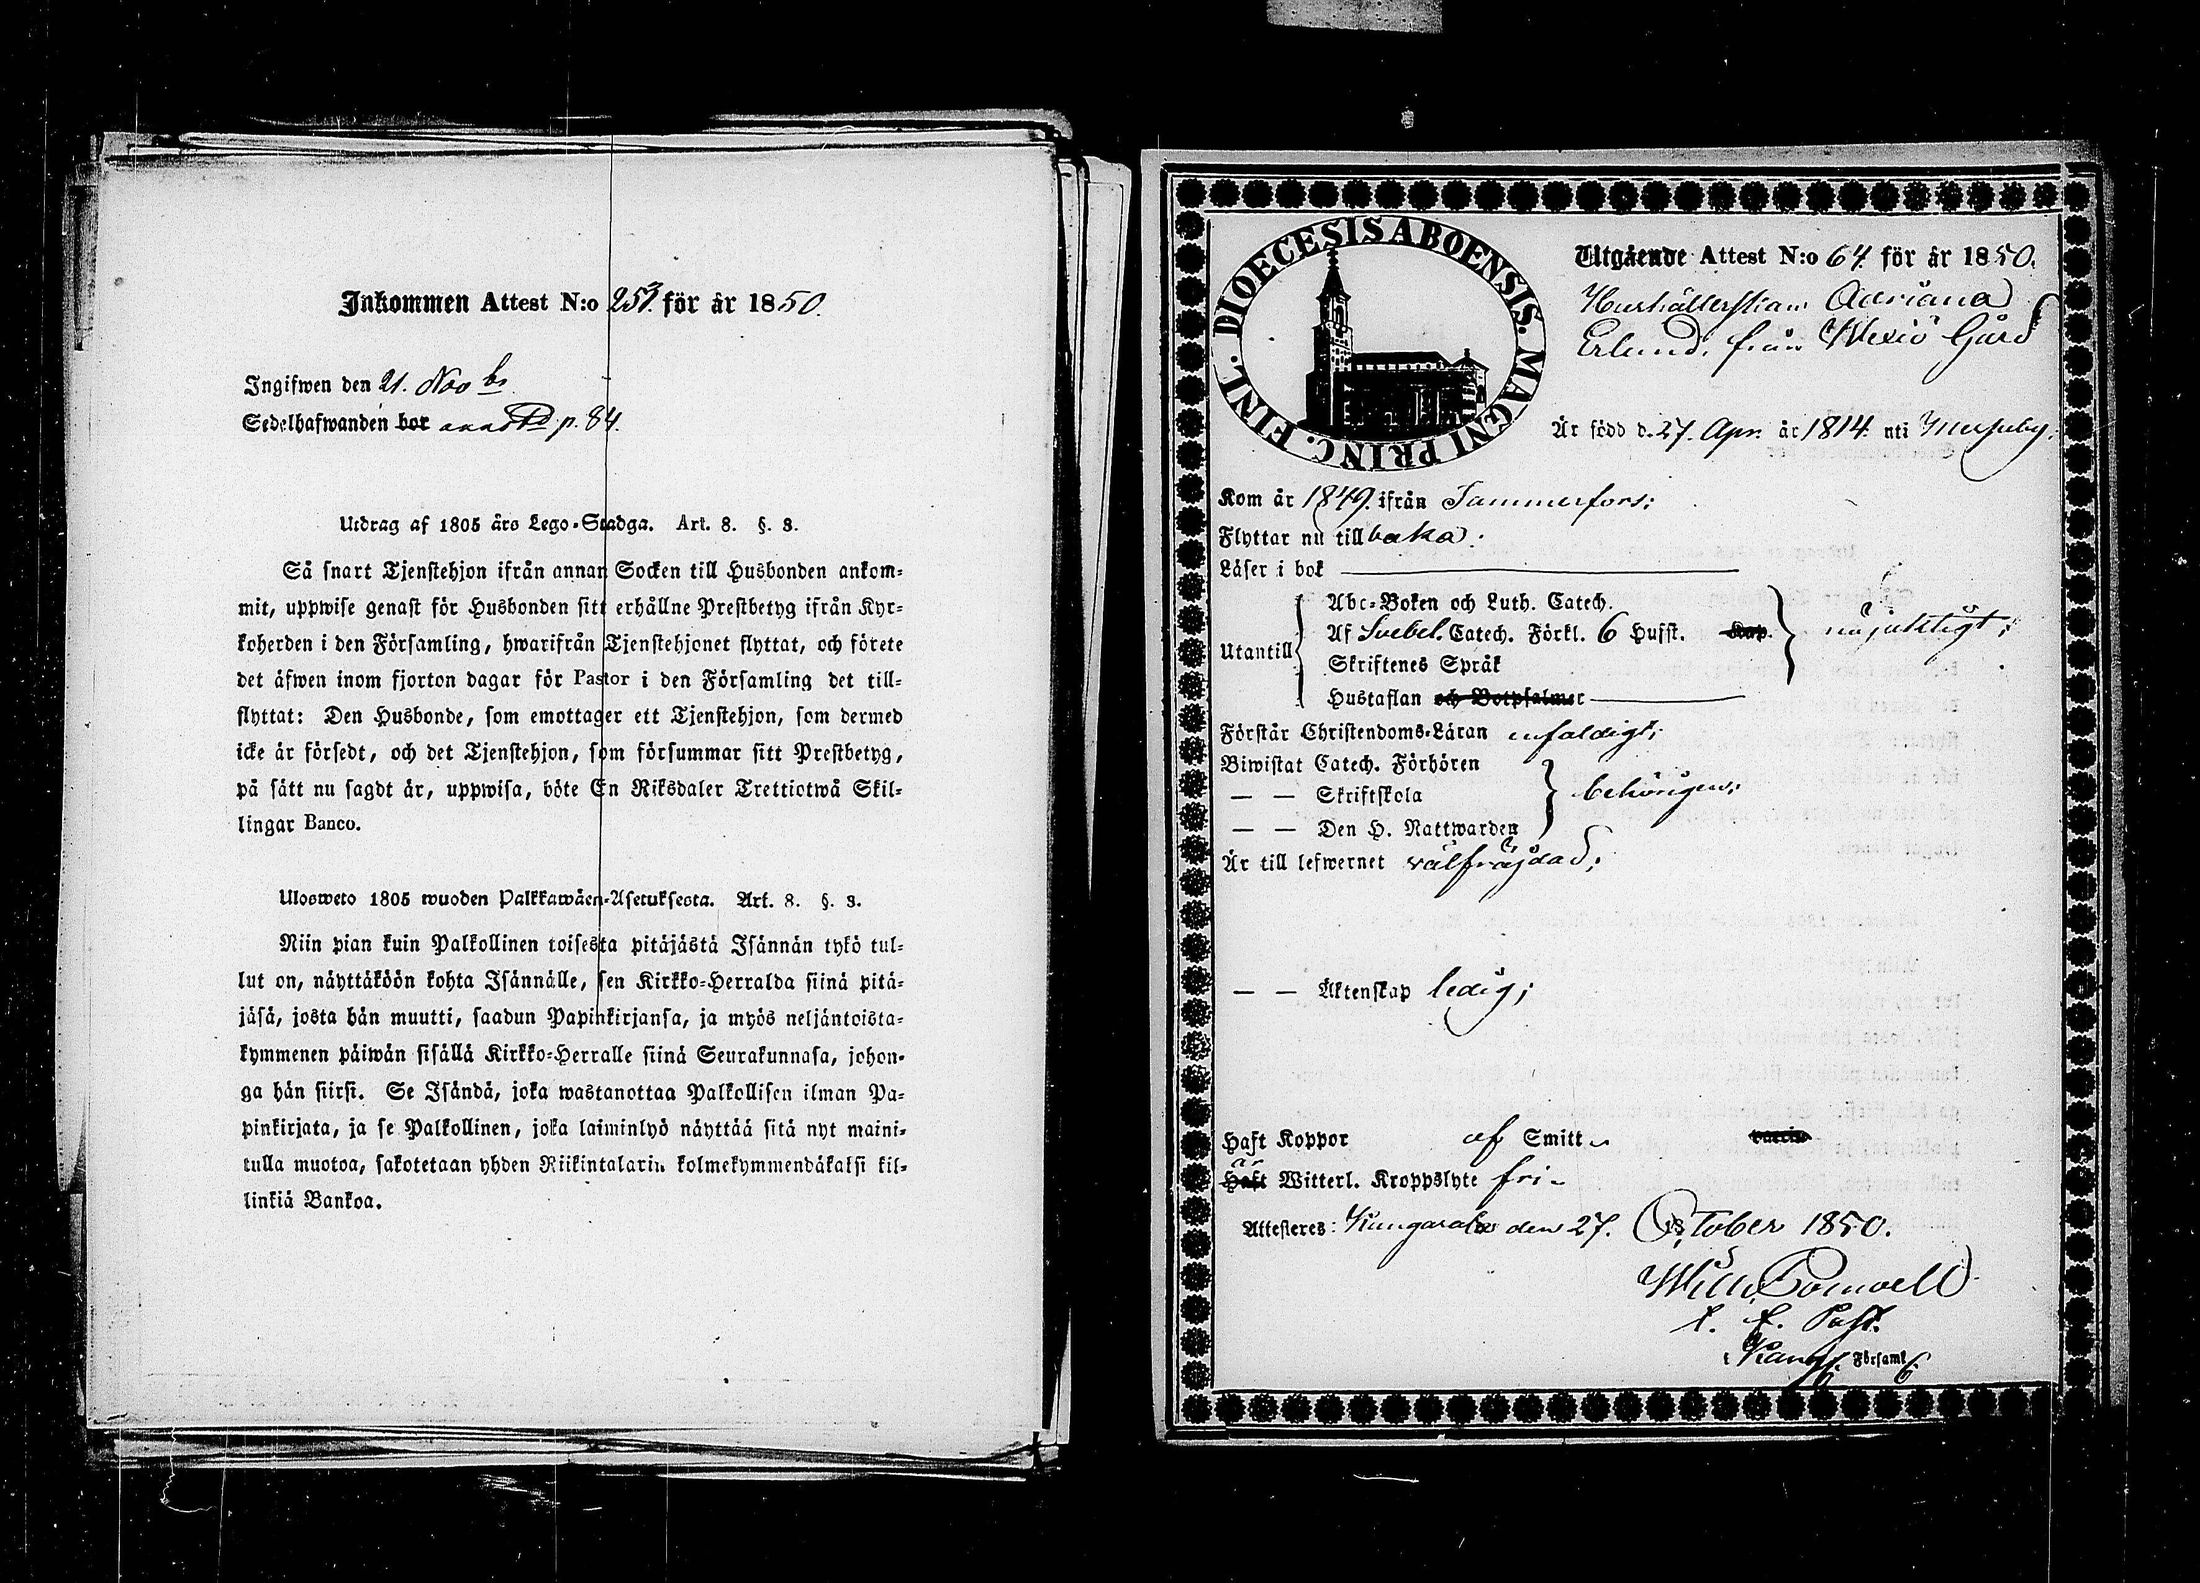 Inkommen Attest N:o 257. för år 1850.
Ingifwen den 21. Novbr
Sedelhafwanden bor annot p. 84.
Utdrag af 1805 års Lego-Stadga. Art. 8. §. 3.
Så snart Tjenstehjon ifrån annan Socken till Husbonden ankom-
mit, uppwise genast för Husbonden sitt erhållne Prestbetyg ifrån Kyr-
koherden i den Församling, hwarifrån Tjenstehjonet flyttat, och förete
det äfwen inom fjorton dagar för Pastor i den Församling det till-
flyttat: Den Husbonde, som emottager ett Tjenstehjon, som dermed
icke är försedt, och det Tjenstehjon, som försummar sitt Prestbetyg,
på sätt nu sagdt är, uppwisa, böte En Riksdaler Trettiotwå Skil-
lingar Banco.
Ulosweto 1805 wuoden Palkkawäen-Asetuksesta. Art. 8. §. 3.
Niin pian kuin Palkollinen toisesta pitäjästä Isännän tykö tul-
lut on, näyttäköön kohta Isännälle, sen Kirkko-Herralda siinä pitä-
jäsä, josta hän muutti, saadun Papinkirjansa, ja myös neljäntoista-
kymmenen päiwän sisällä Kirkko-Herralle siinä Seurakunnasa, johon-
ga hän siirsi. Se Isändä, joka wastanottaa Palkollisen ilman Pa-
pinkirjata, ja se Palkollinen, joka laiminlyö näyttää sitä nyt maini-
tulla muotoa, sakotetaan yhden Riikintalarin kolmekymmendäkaksi kil-
linkiä Bankoa.
DIOECESIS ABOENSIS. MAGNI PRINC. FINL.
Utgående Attest N:o 64. för år 1850.
Hushållerskan Adriana
Erlund, från Wexiö Gård
Är född d. 27. Apr. år 1814. uti
Kom år 1849. ifrån Tammerfors;
Flyttar nu till baka.
Läser i bok
Utantill
Abc-Boken och Luth. Catech.
Af Svebel. Catech. Förkl. 6 Hufst. Kap. nöjaktigt;
Skriftenes Språk
Hustaflan och Botpsalmer
Förstår Christendoms-Läran enfaldigt;
Biwistat Catech. Förhören
— — Skriftskola behörigen;
— — Den H. Nattwarden
Är till lefwernet välfräjdad;
— — Äktenskap ledig;
Haft Koppor af Smitt vaccin
Haft är Witterl. Kroppslyte fri
Attesteres: Kangasala den 27. October 1850.
Wilh. Bonwell
t. f. Past.
i Kang. Församl.